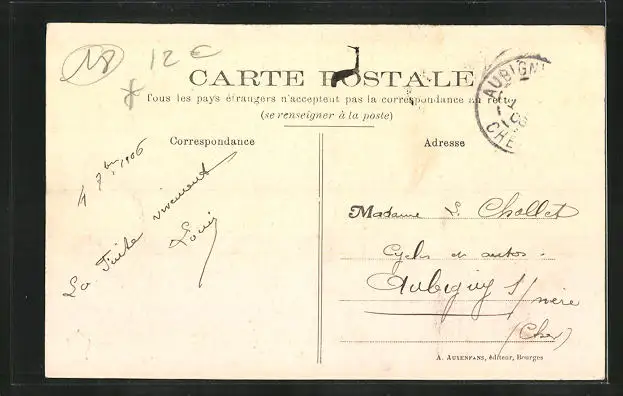 18
12 €
CARTE POSTALE
Tous les pays étrangers n'acceptent pas la correspondance au recto
(se renseigner à la poste)
AUBIGNY
CHER
Correspondance
Adresse
4 7bre 1906
La suite vivement
Louis
Madame L. Chollet
Cycles et autos.
Aubigny s/ nère
(Cher)
A. AUXENFANS, éditeur, Bourges